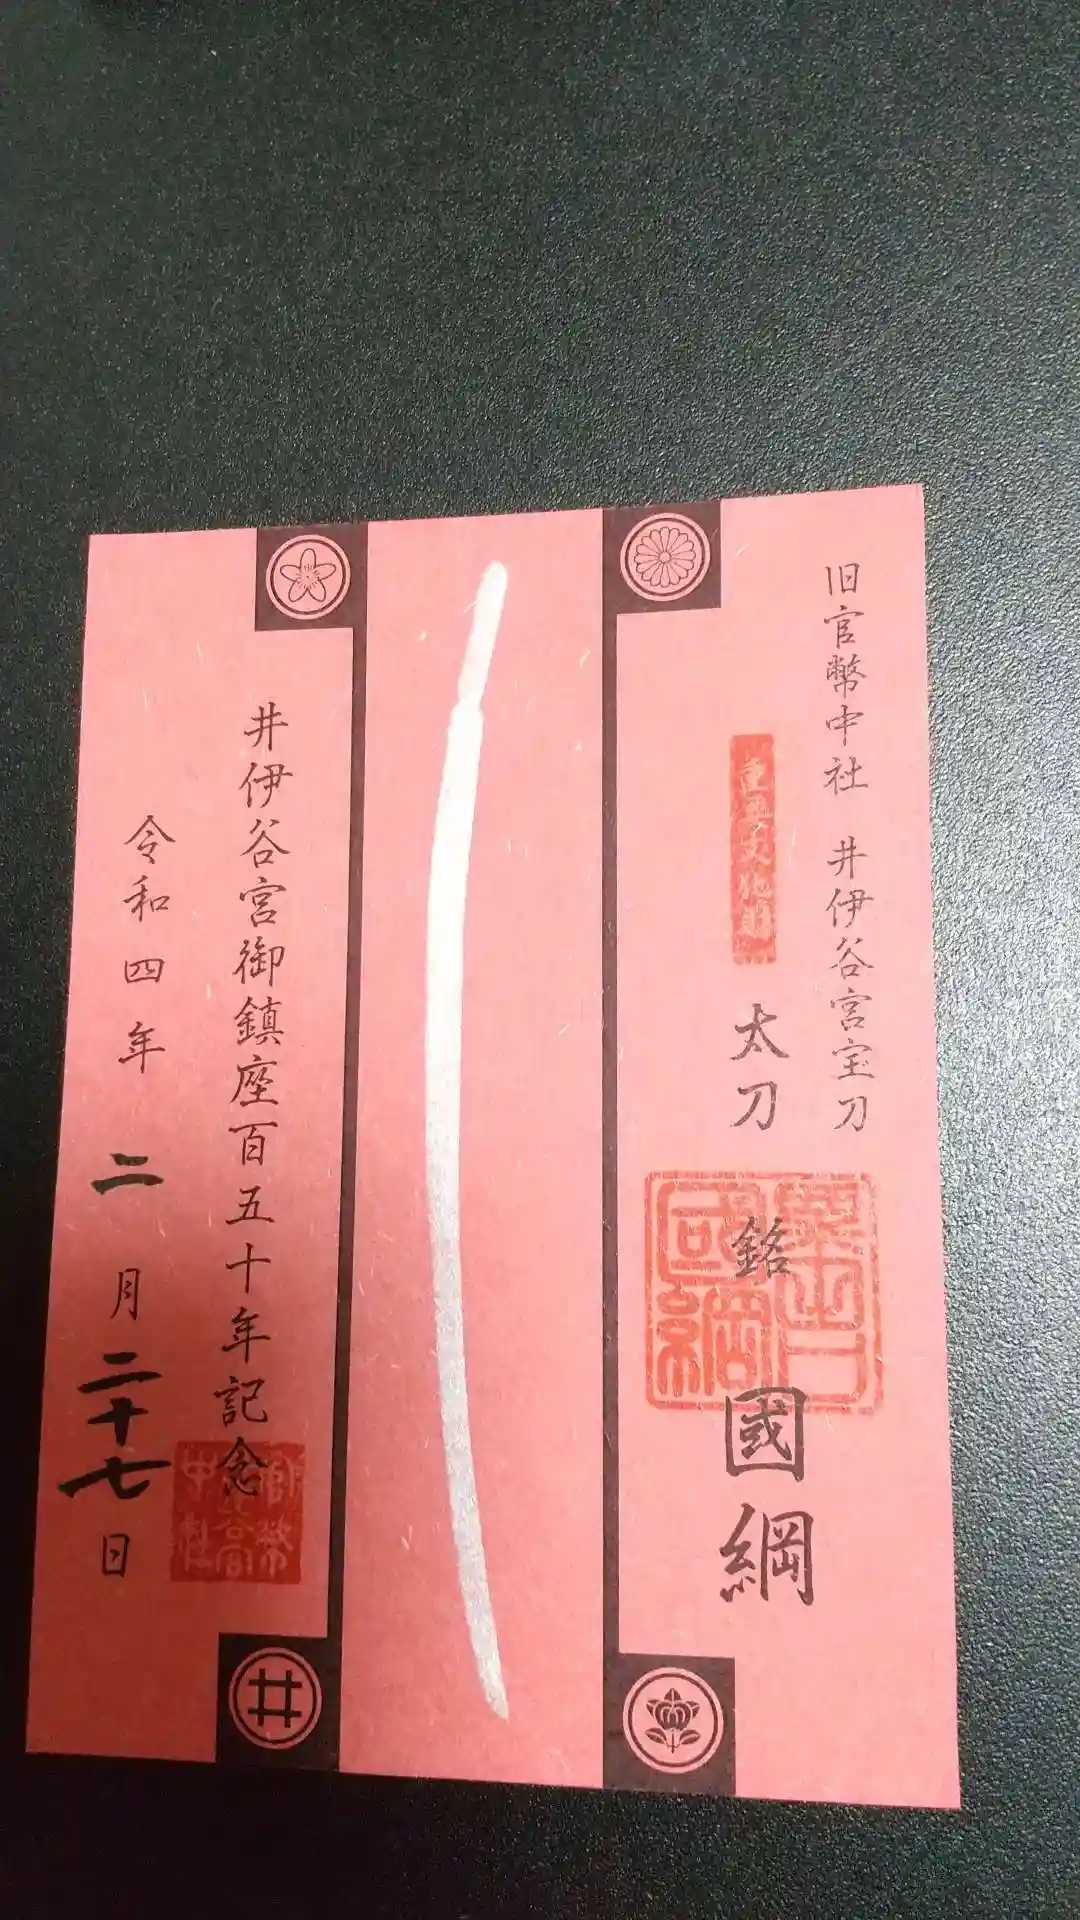 旧官幣中社 井伊谷宮宝刀
重要文化財
太刀 銘 國綱
國綱
井伊谷宮御鎮座百五十年記念
官幣
井伊谷宮
中社
令和四年 二月二十七日
井